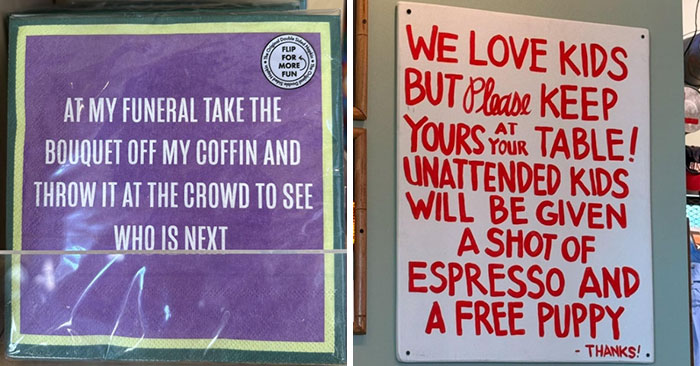 FLIP
FOR
MORE
FUN
AT MY FUNERAL TAKE THE
BOUQUET OFF MY COFFIN AND
THROW IT AT THE CROWD TO SEE
WHO IS NEXT
WE LOVE KIDS
BUT Please KEEP
YOURS AT YOUR TABLE!
UNATTENDED KIDS
WILL BE GIVEN
A SHOT OF
ESPRESSO AND
A FREE PUPPY
- THANKS!